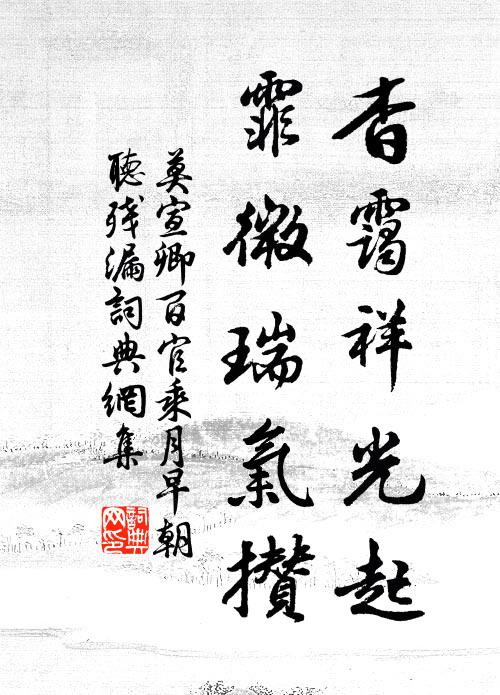 杳靄祥光起
霏微瑞氣攢
莫宣卿百官乘月早朝
聽殘漏詞典網集
詞典网印